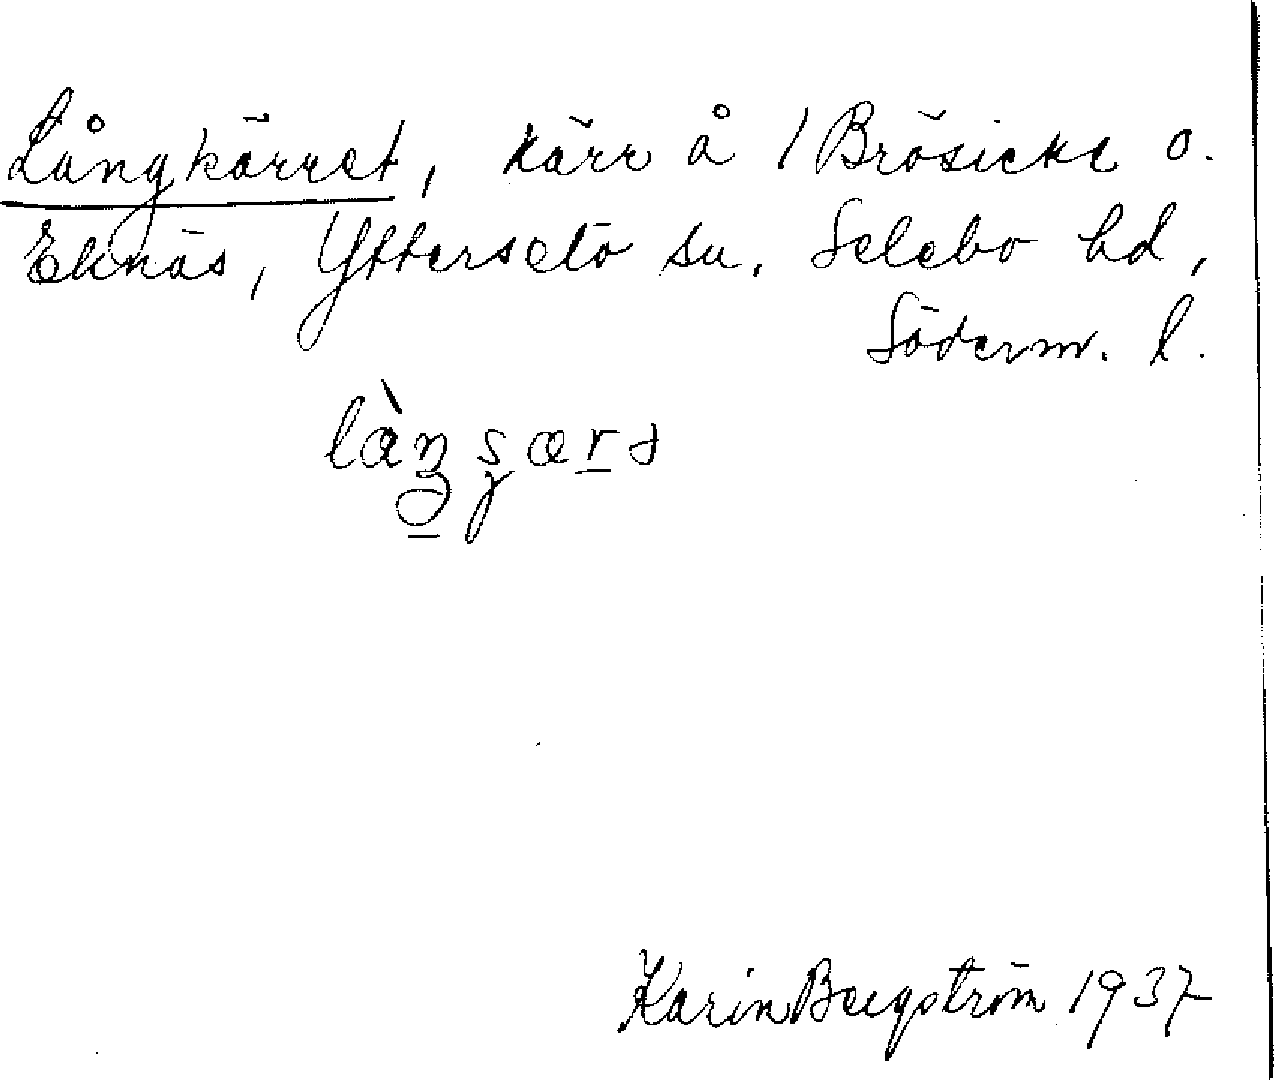 Långkärret, kärr å / Brösicke o.
Eknäs, Ytterselö sn. Selebo hd,
Söderm. l.
Karin Bergström 1937